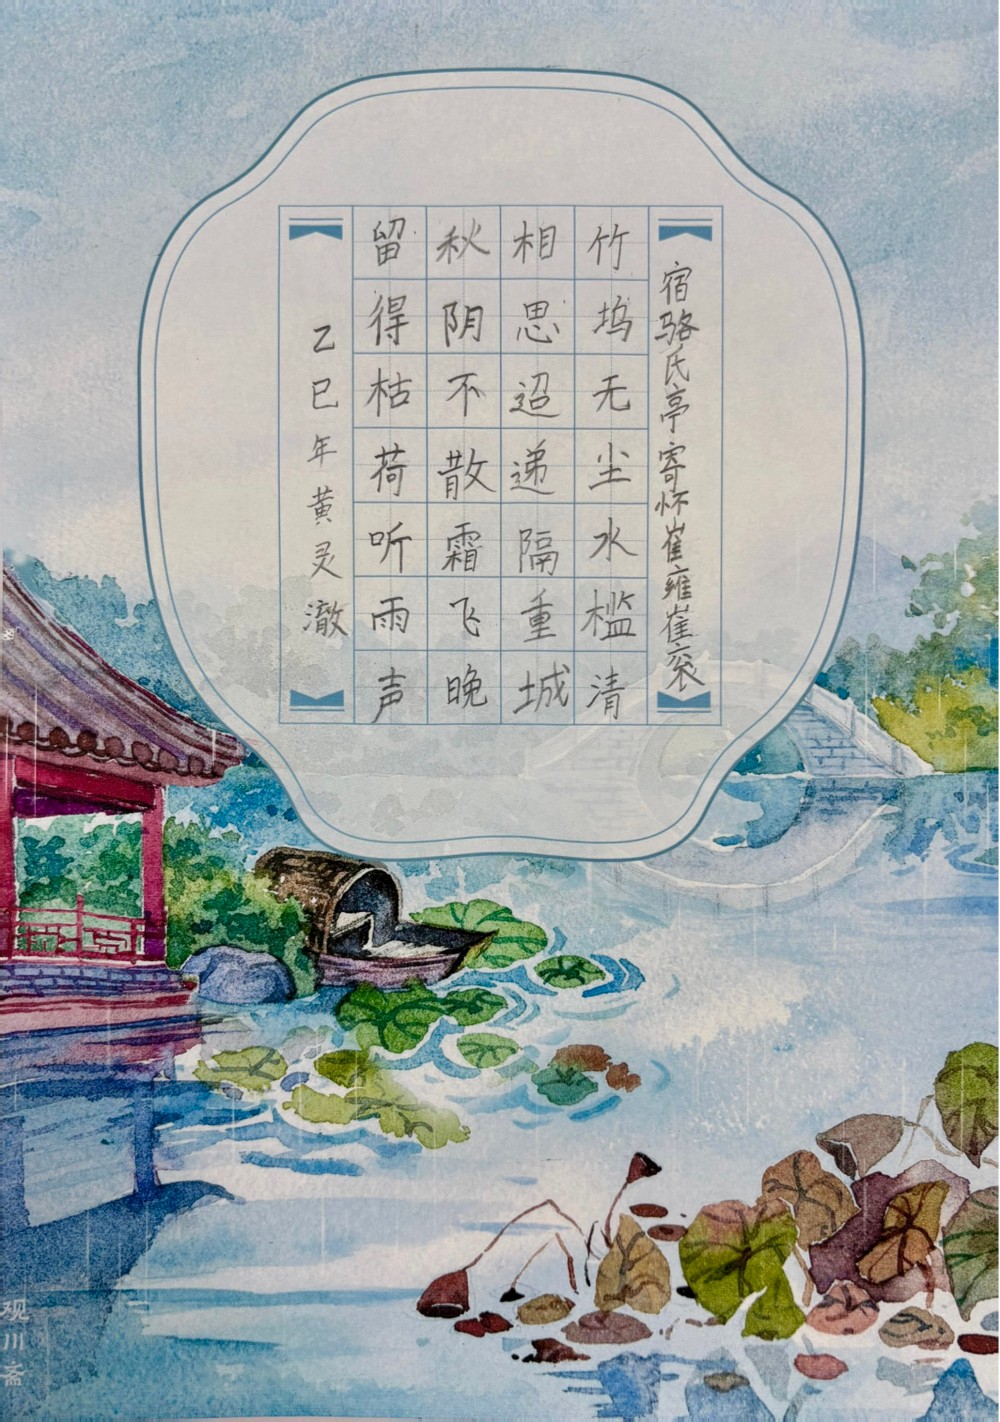 宿骆氏亭寄怀崔雍崔衮
竹坞无尘水槛清
相思迢递隔重城
秋阴不散霜飞晚
留得枯荷听雨声
乙巳年黄灵澈
观川斋